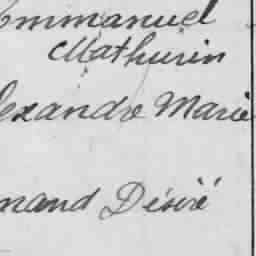 Emmanuel
Mathurin
lexandre Marie
mand Désiré